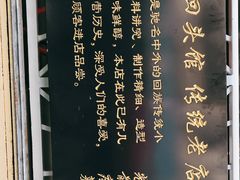 回头馆 传统老店
是驰名中外的回族传统小
料讲究、制作精细、造型
味鲜醇，本店在此已有几
营历史，深受人们的喜爱，
顾客进店品尝。